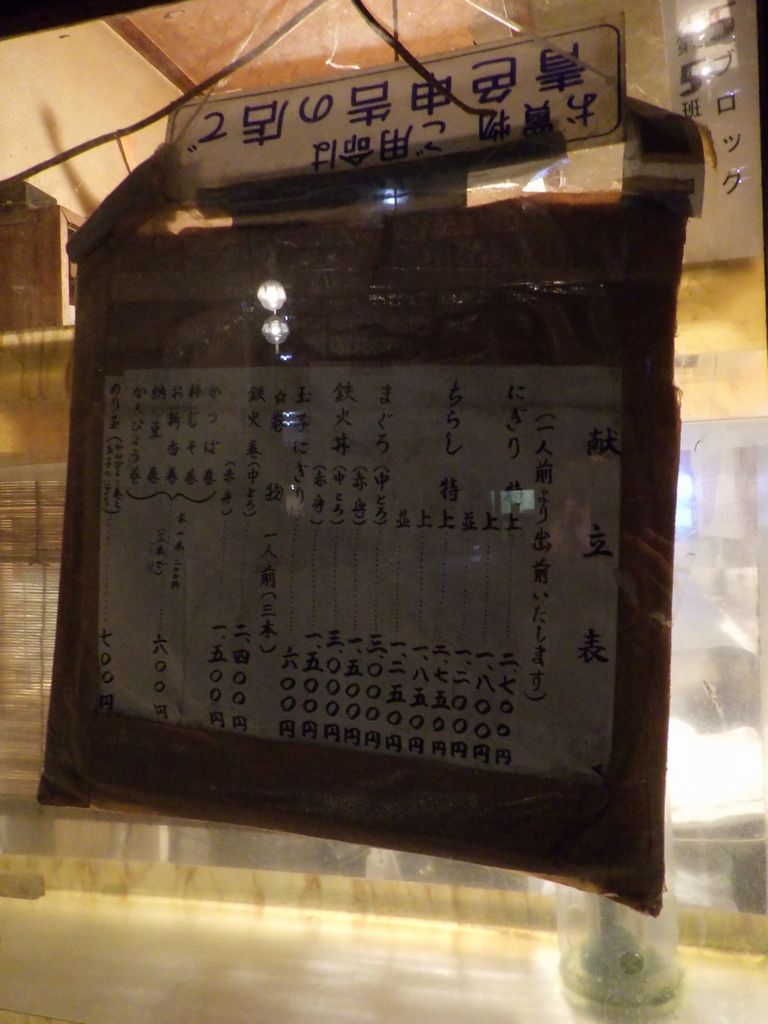 お買物ご用命は
青色申告の店で
ブロック
第5班
献立表
(一人前より出前いたします)
にぎり 特上 二、七〇〇円
上 一、八〇〇円
並 一、二〇〇円
ちらし 特上 二、七五〇円
上 一、八五〇円
並 一、二五〇円
まぐろ(中とろ) 三、〇〇〇円
(赤身) 一、五〇〇円
鉄火丼(中とろ) 三、〇〇〇円
(赤身) 一、五〇〇円
玉子にぎり 六〇〇円
☆巻物 一人前(三本)
鉄火巻(中とろ) 二、四〇〇円
(赤身) 一、五〇〇円
かっぱ巻
梅しそ巻
お新香巻 一本二〇〇円
納豆巻 (三本で) 六〇〇円
かんぴょう巻
のり玉 七〇〇円